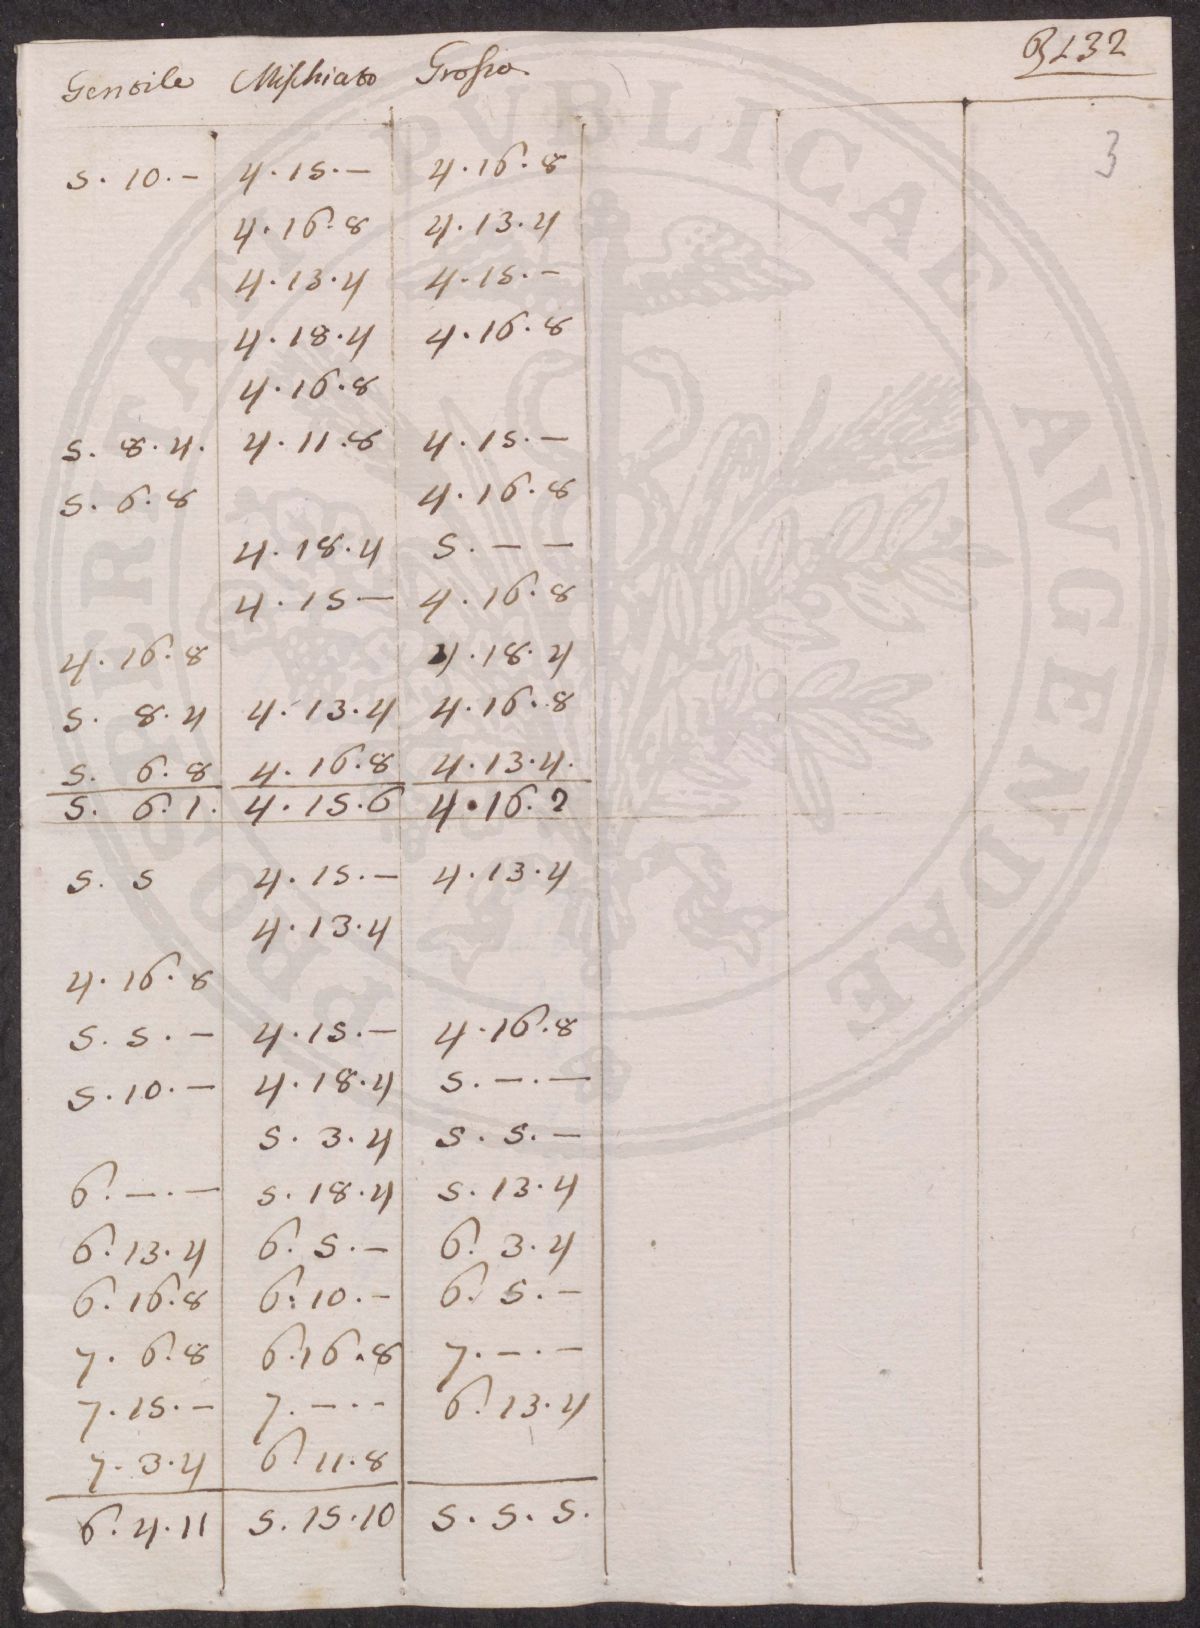 B232
3
Gentile Mischiato Grosso
5. 10. – 4. 15. – 4. 16. 8
4. 16. 8 4. 13. 4
4. 13. 4 4. 15. –
4. 18. 4 4. 16. 8
4. 16. 8
5. 8. 4. 4. 11. 8 4. 15. –
5. 6. 8 4. 16. 8
4. 18. 4 5. – –
4. 15 – 4. 16. 8
4. 16. 8 4. 18. 4
5. 8. 4 4. 13. 4 4. 16. 8
5. 6. 8 4. 16. 8 4. 13. 4.
5. 6. 1. 4. 15. 6 4. 16. 2
5. 5 4. 15. – 4. 13. 4
4. 13. 4
4. 16. 8
5. 5. – 4. 15. – 4. 16. 8
5. 10. – 4. 18. 4 5. –. –
5. 3. 4 5. 5. –
6. –. – 5. 18. 4 5. 13. 4
6. 13. 4 6. 5. – 6. 3. 4
6. 16. 8 6. 10. – 6. 5. –
7. 6. 8 6. 16. 8 7. –. –
7. 15. – 7. –. – 6. 13. 4
7. 3. 4 6. 11. 8
6. 4. 11 5. 15. 10 5. 5. 5.
PROSPERITATI PUBLICAE AVGENDAE